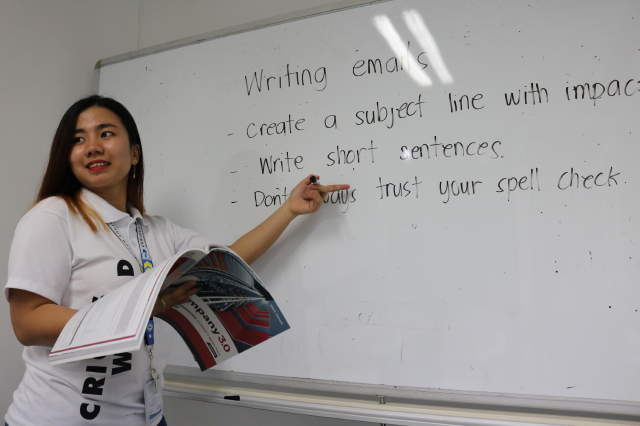 Writing emails
- Create a subject line with impact
- Write short sentences.
- Don't always trust your spell check.
company 3.0
CRI
W
D